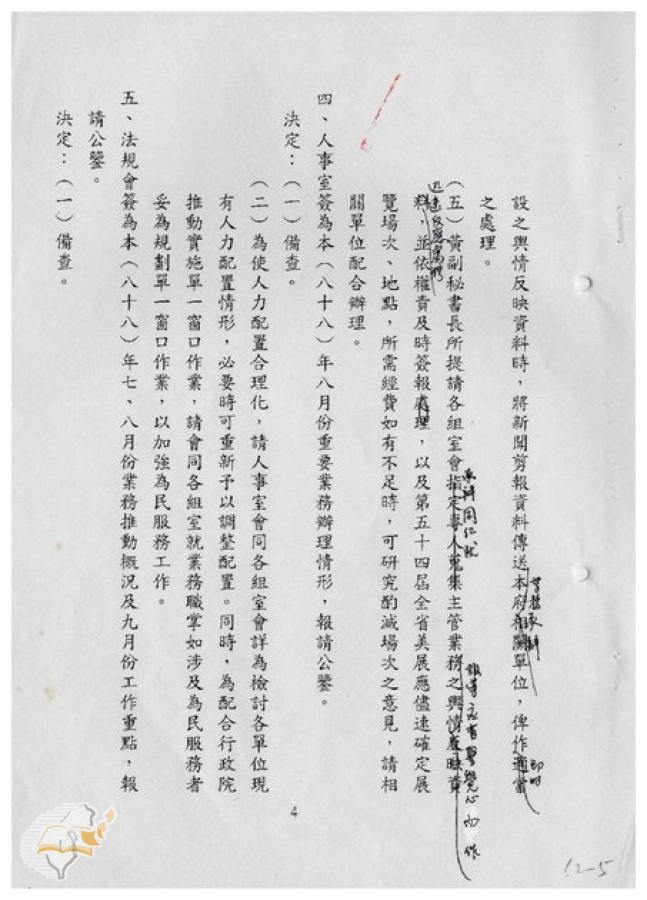 設之輿情反映資料時，將新聞剪報資料傳送本府相關單位，俾作適當
之處理。
（五）黃副秘書長所提請各組室會指定專人蒐集主管業務之輿情反映資
料，並依權責及時簽報處理，以及第五十四屆全省美展應儘速確定展
覽場次、地點，所需經費如有不足時，可研究酌減場次之意見，請相
關單位配合辦理。
四、人事室簽為本（八十八）年八月份重要業務辦理情形，報請公鑒。
決定：（一）備查。
（二）為使人力配置合理化，請人事室會同各組室會詳為檢討各單位現
有人力配置情形，必要時可重新予以調整配置。同時，為配合行政院
推動實施單一窗口作業，請會同各組室就業務職掌如涉及為民服務者
妥為規劃單一窗口作業，以加強為民服務工作。
五、法規會簽為本（八十八）年七、八月份業務推動概況及九月份工作重點，報
請公鑒。
決定：（一）備查。
4
12-5